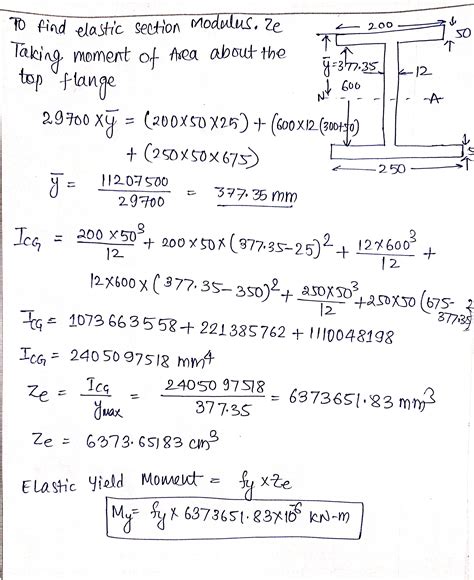 To find elastic section modulus. Ze
Taking moment of Area about the
top flange
200
50
ȳ=377.35
12
600
N
A
250
5
29700 x ȳ = (200x50x25) + (600x12(300+50)
+ (250x50x675)
ȳ = 11207500/29700 = 377.35 mm
I_CG = 200x50³/12 + 200x50x(377.35-25)² + 12x600³/12 +
12x600x(377.35-350)² + 250x50³/12 + 250x50(675-377.35)²
I_CG = 1073663558 + 221385762 + 1110048198
I_CG = 2405097518 mm⁴
Ze = I_CG/y_max = 2405097518/377.35 = 6373651.83 mm³
Ze = 6373.65183 cm³
Elastic Yield Moment = fy x Ze
My = fy x 6373651.83x10⁻⁶ kN-m